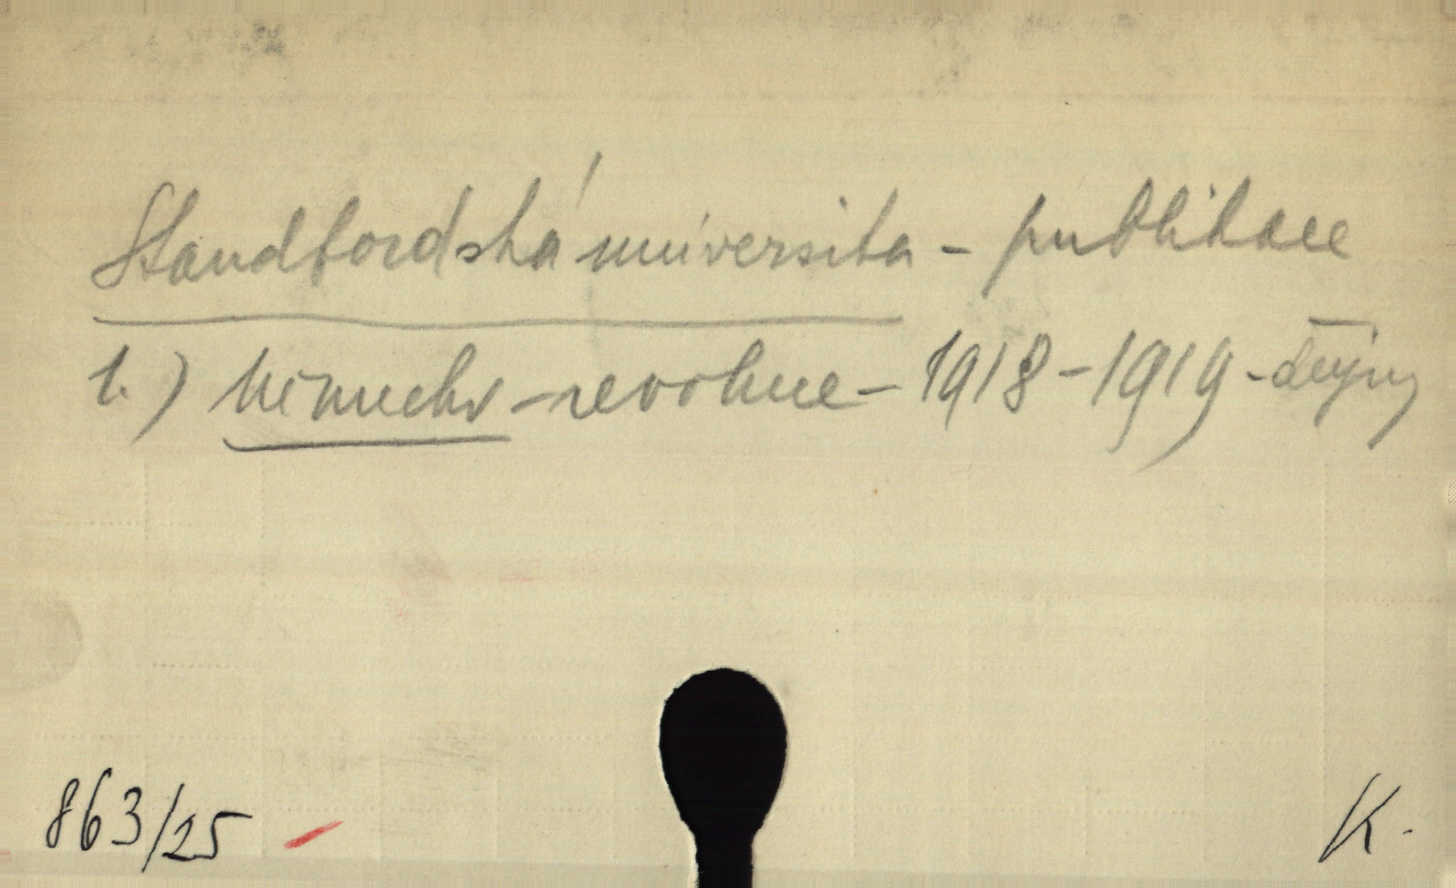 Standfordská universita - publikace
1.) Německo - revoluce - 1918 - 1919 - dějiny
863/25 K.